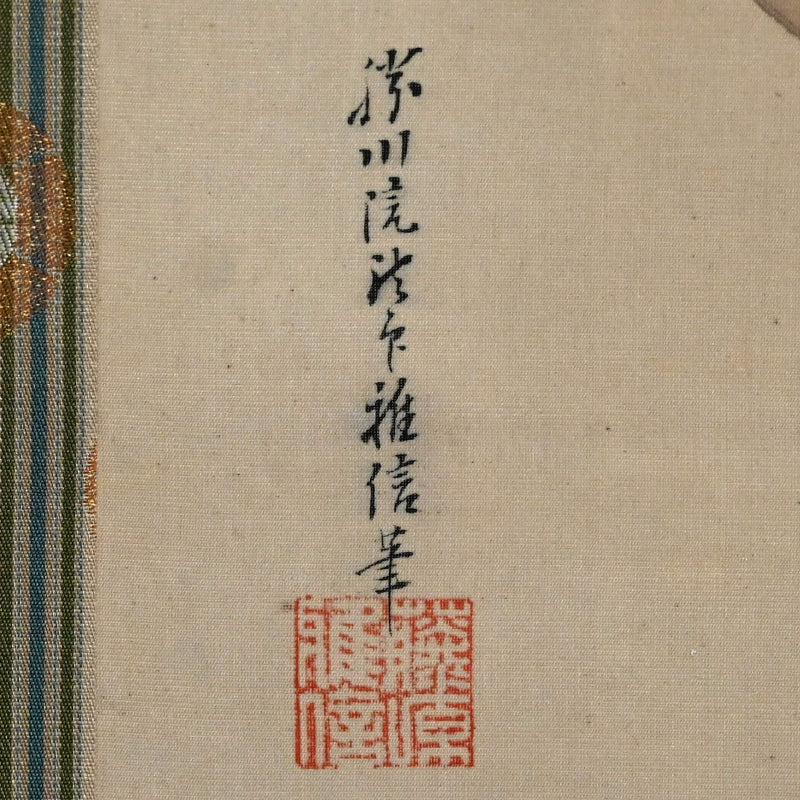 勝川院法印雅信筆